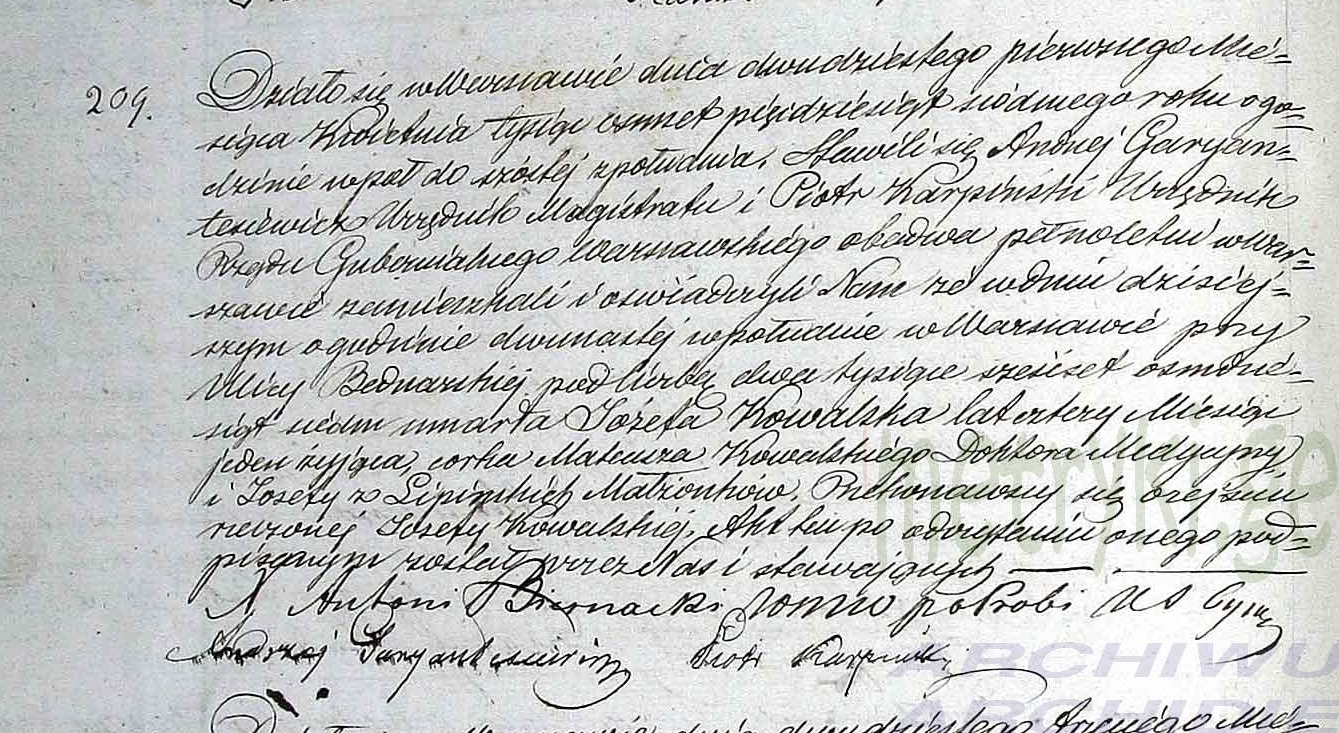 209.
Działo się w Warszawie dnia dwudziestego pierwszego Mie-
siąca Kwietnia tysiąc osmset pięćdziesiąt siódmego roku o go-
dzinie wpół do szóstej z południa, Stawili się Andrzej Garyan-
tesiewicz Urzędnik Magistratu i Piotr Karpiński Urzędnik
Rządu Gubernialnego Warszawskiego obadwa pełnoletni w War-
szawie zamieszkali i oswiadczyli Nam że w dniu dzisiej-
szym o godzinie dwunastej w południe w Warszawie przy
Ulicy Bednarskiej pod liczbą dwa tysiące sześćset osmdzie-
siąt siedm umarła Józefa Kowalska lat cztery Miesiąc
jeden żyjąca, corka Mateusza Kowalskiego Doktora Medycyny
i Josefy z Lipinskich Małżonków. Przekonawszy się o zejściu
rzeczonej Josefy Kowalskiej, Akt ten po odczytaniu onego pod-
pisanym został przez Nas i stawających
X. Antoni Biernacki
Andrzej Garyantesiewicz Piotr Karpiński
Działo się w Warszawie dnia dwudziestego Mie-
metryki.ge
ARCHIWU
ARCHIDIE